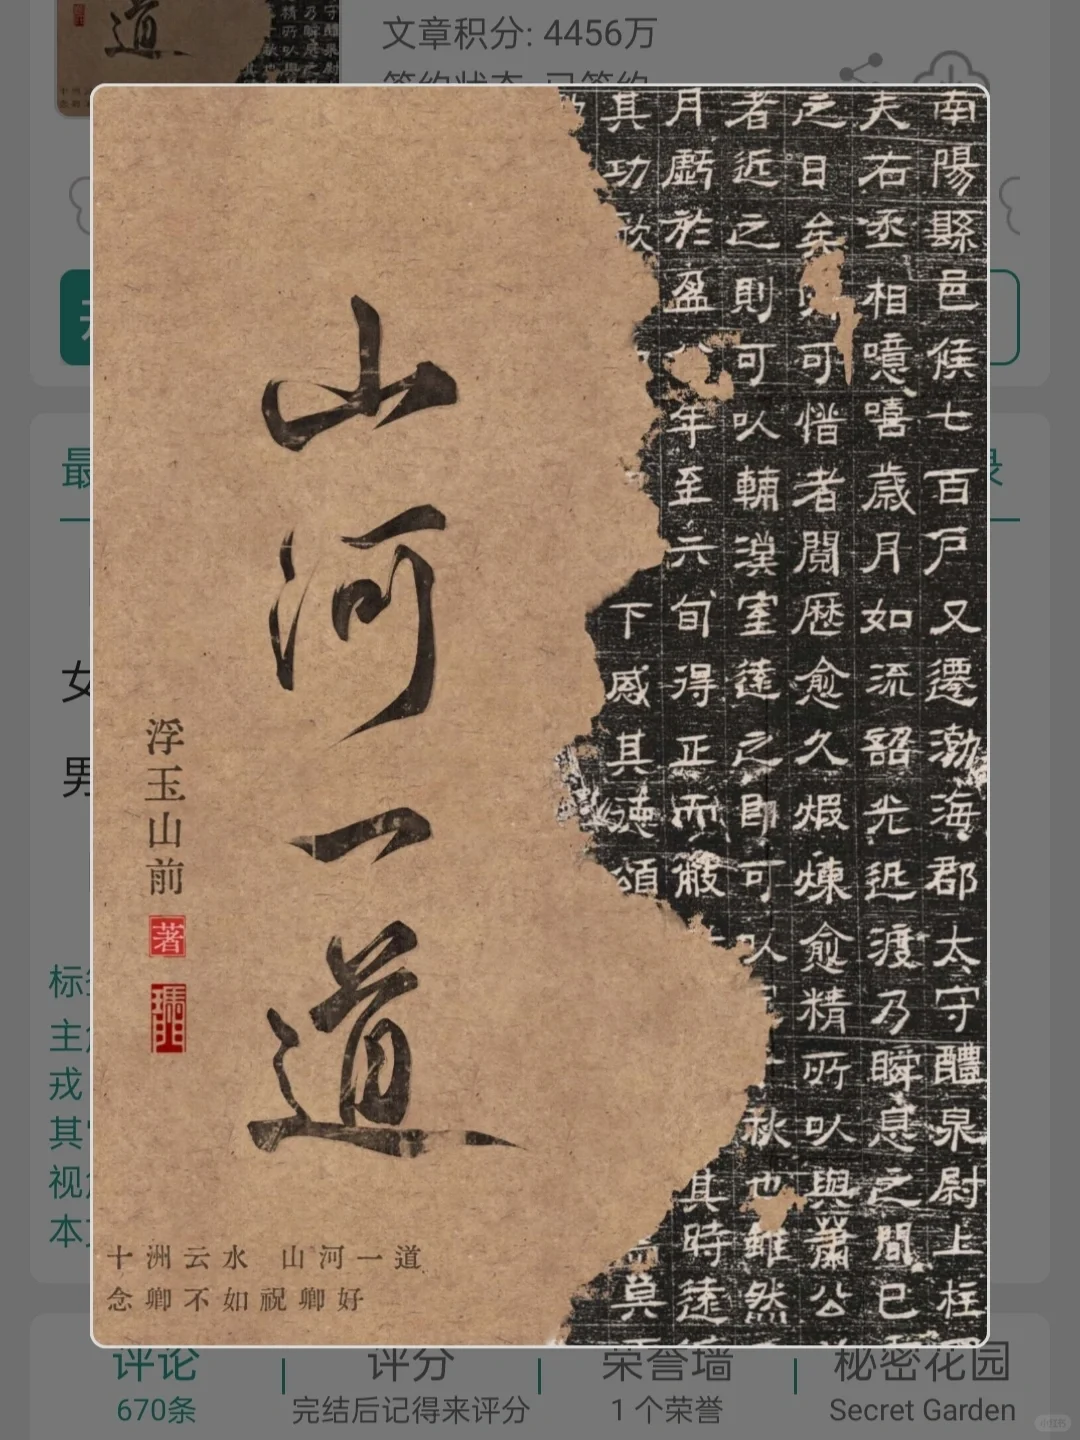 文章积分: 4456万
山河一道
浮玉山前
著
十洲云水 山河一道
念卿不如祝卿好
南陽縣邑侯七百戸又遷渤海郡太守醴泉尉上柱
夫右丞相噫嘻歲月如流韶光迅渡乃瞬息之間已
之日矣 可惜者閱歷愈久煆煉愈精所以與蕭公
者近之則可以輔漢室遠之即可以 秋也雖然
月虧於盈 年至六旬得正而 其時遠
其功 下感其德頌 莫
女
男
标
主
戎
其
视
本
评论
670条
评分
完结后记得来评分
荣誉墙
1 个荣誉
秘密花园
Secret Garden